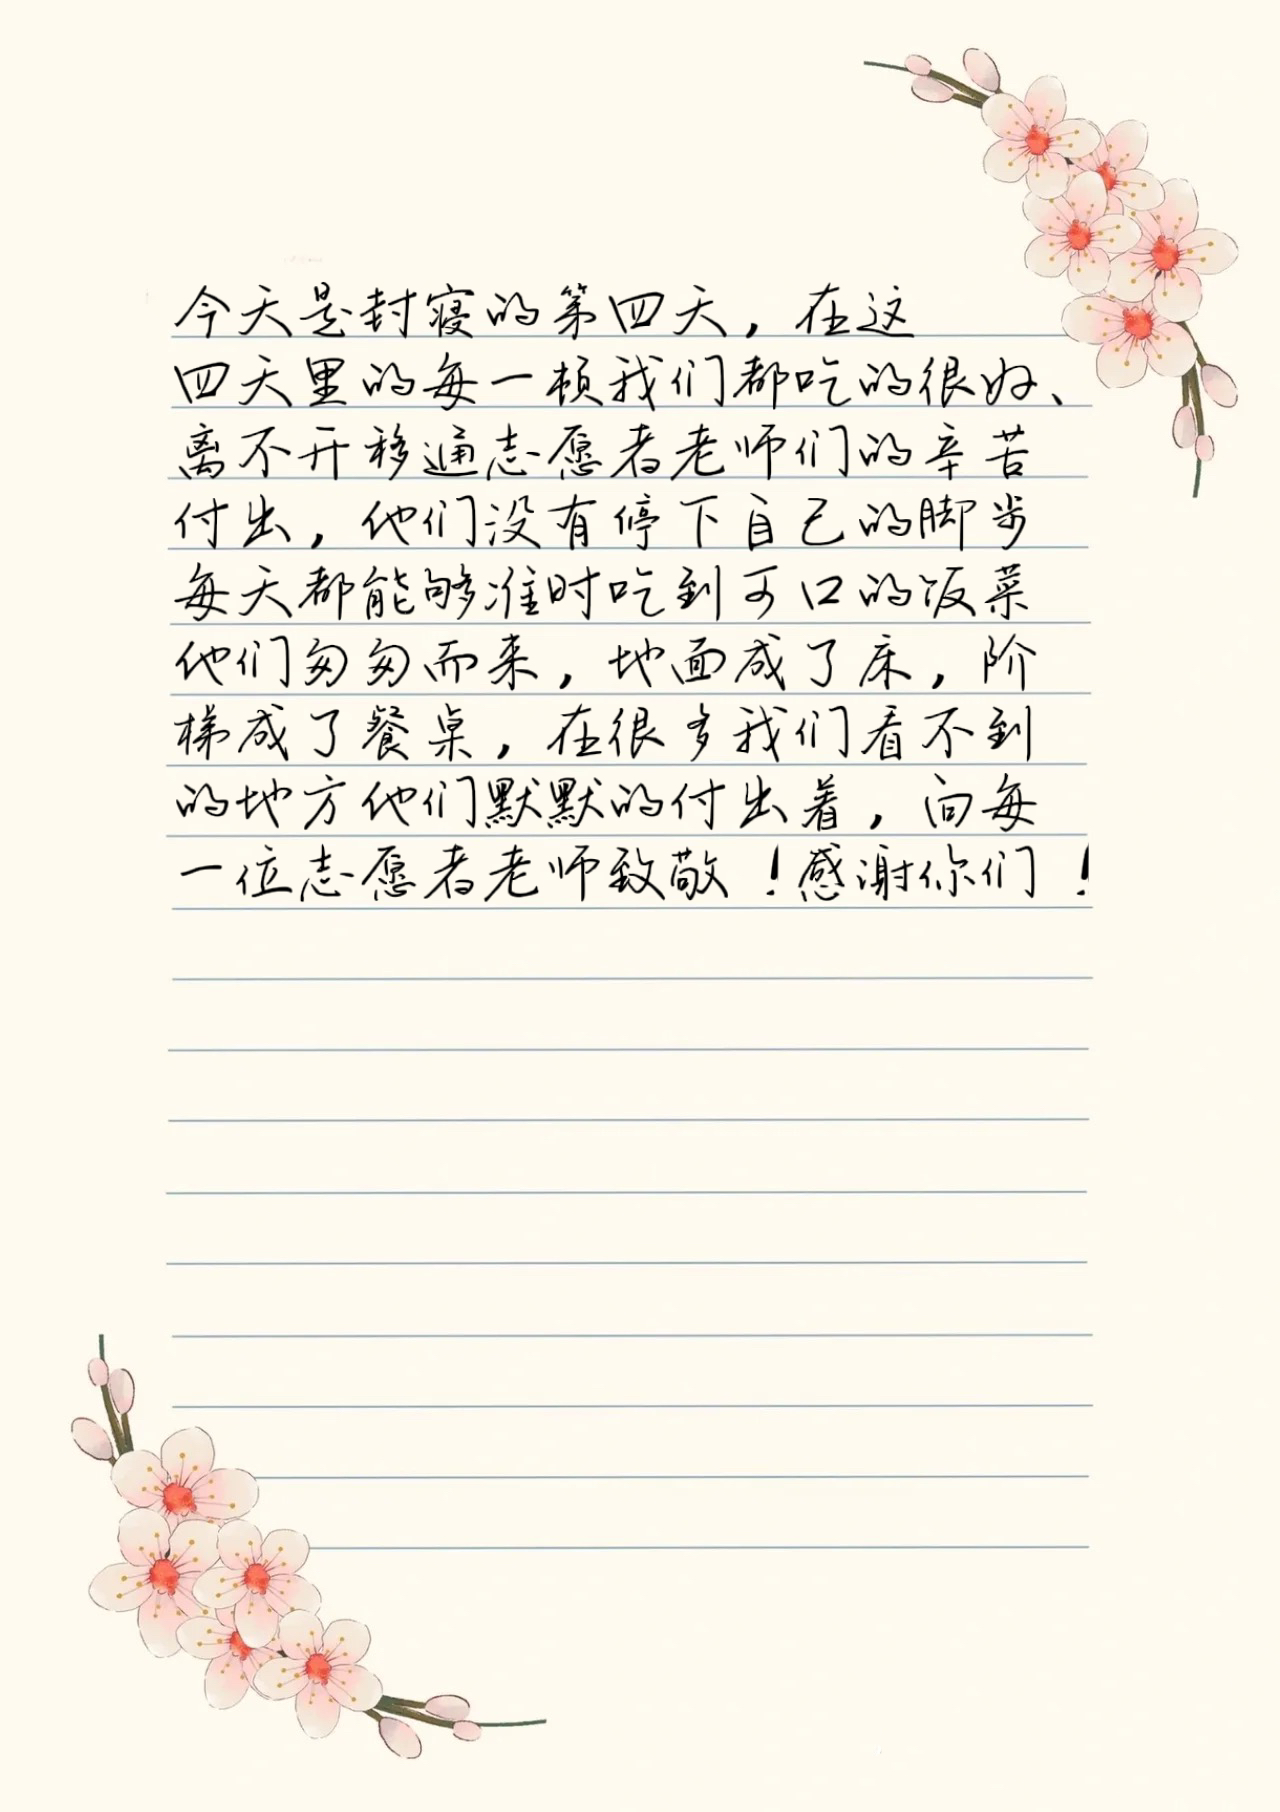 今天是封寝的第四天，在这
四天里的每一顿我们都吃的很好、
离不开移通志愿者老师们的辛苦
付出，他们没有停下自己的脚步
每天都能够准时吃到可口的饭菜
他们匆匆而来，地面成了床，阶
梯成了餐桌，在很多我们看不到
的地方他们默默的付出着，向每
一位志愿者老师致敬！感谢你们！